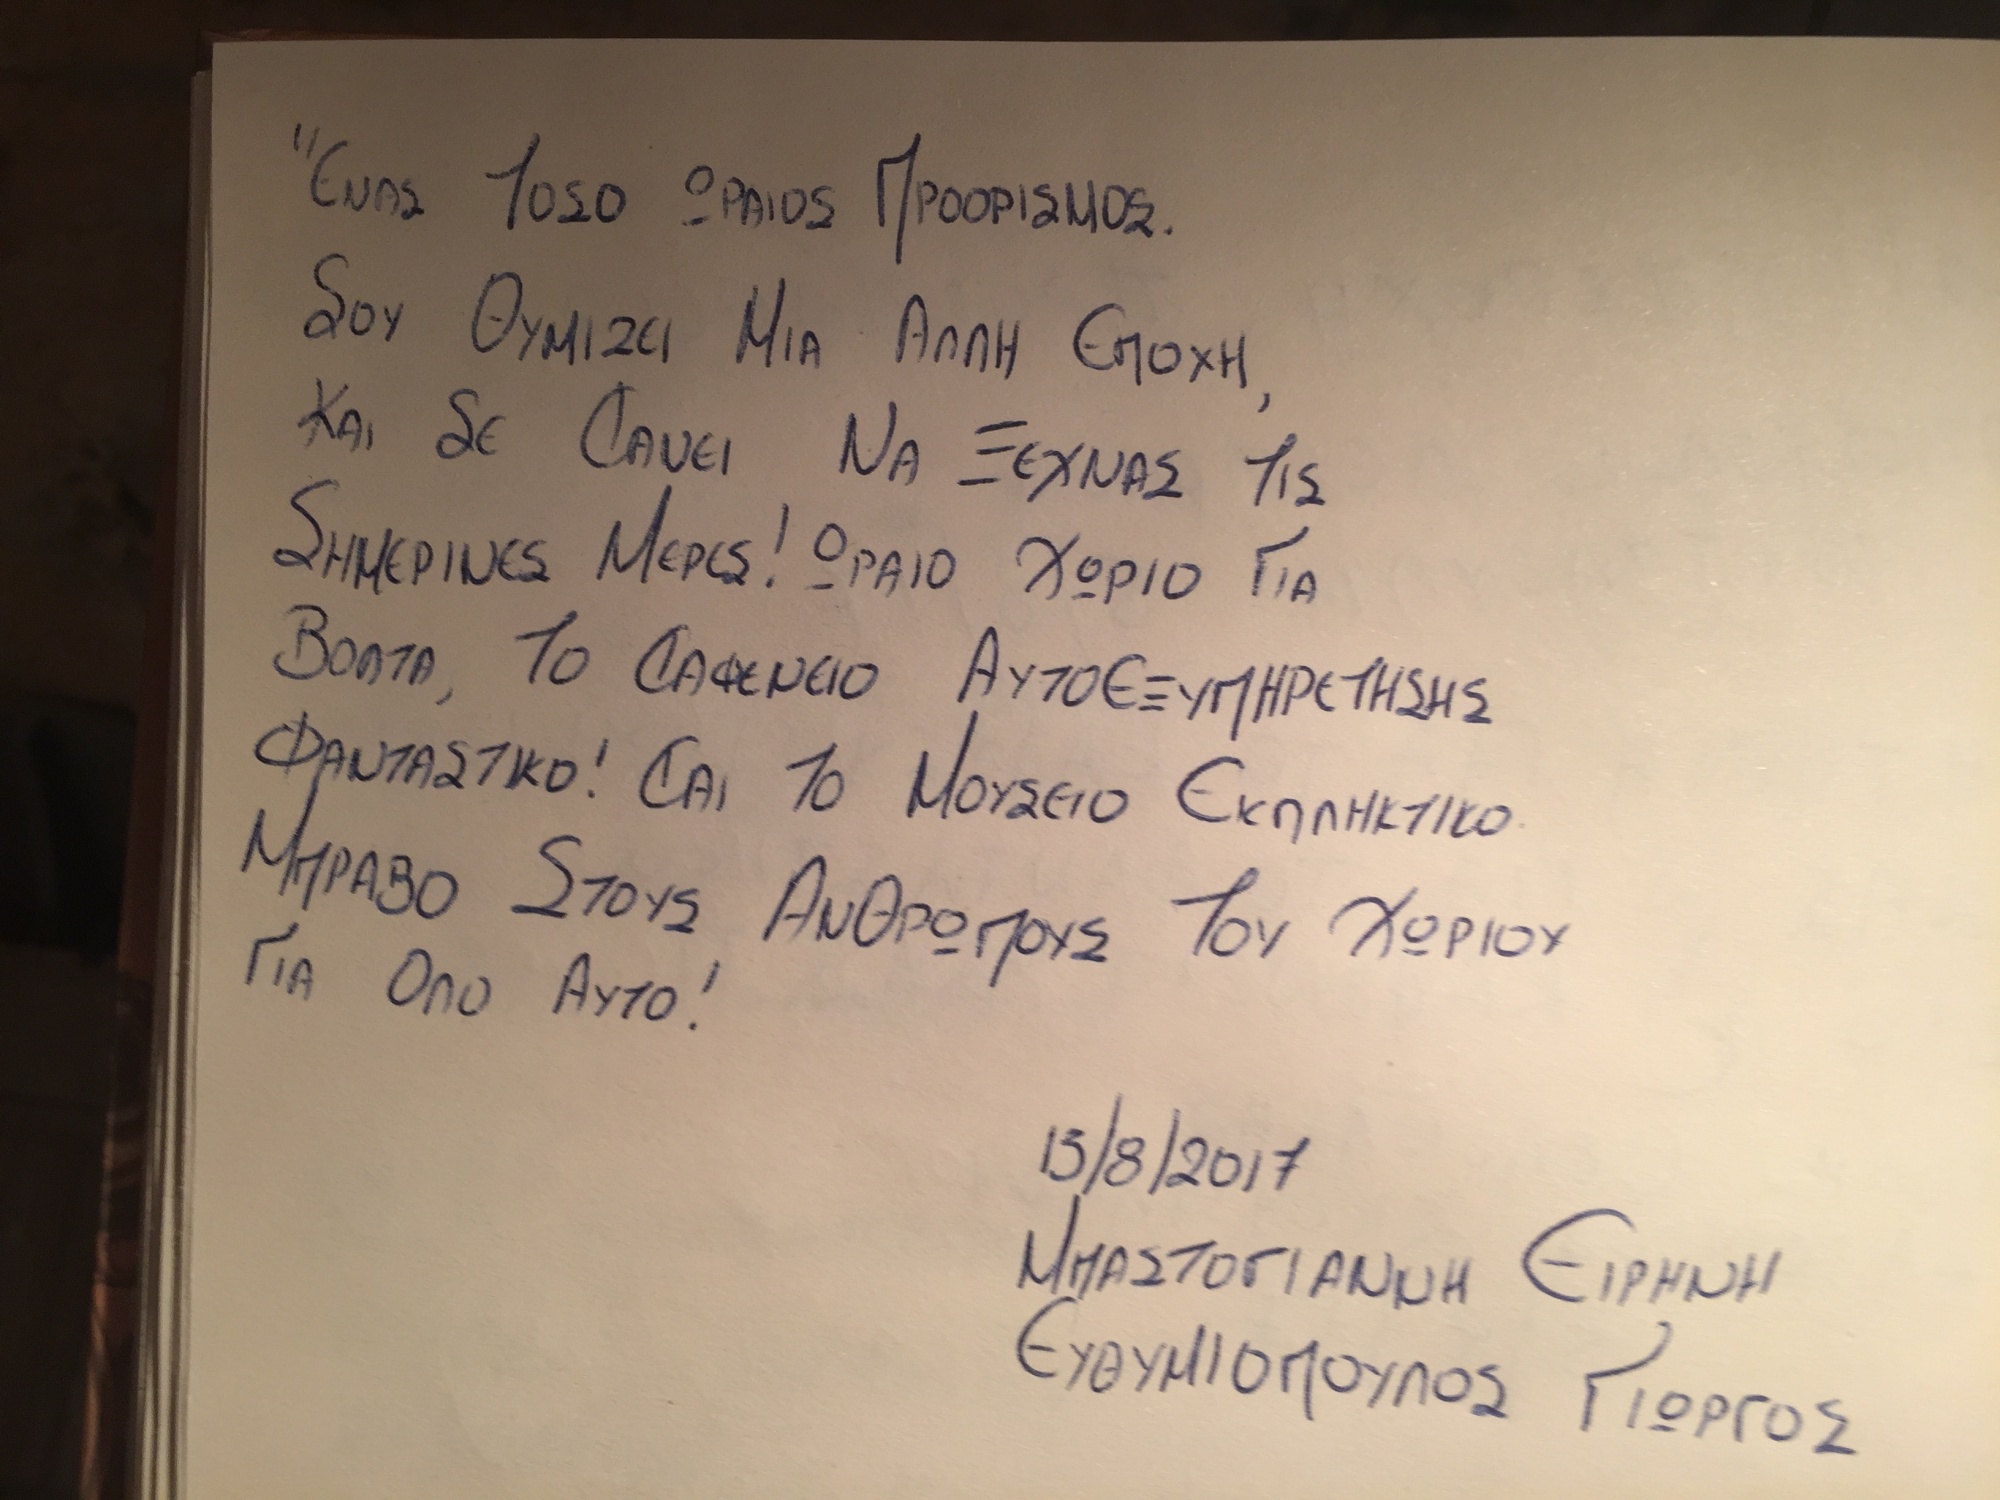 "Ενας Τοσο Ωραιος Προορισμος.
Σου Θυμιζει Μια Αλλη Εποχη,
Και Σε Κανει Να Ξεχνας Τις
Σημερινες Μερες! Ωραιο Χωριο Για
Βολτα, Το Καφενειο ΑυτοΕξυπηρετησης
Φανταστικο! Και Το Μουσειο Εκπληκτικο.
Μπραβο Στους Ανθρωπους Του Χωριου
Για Ολο Αυτο!
15/8/2017
Μπαστογιαννη Ειρηνη
Ευθυμιοπουλος Γιωργος